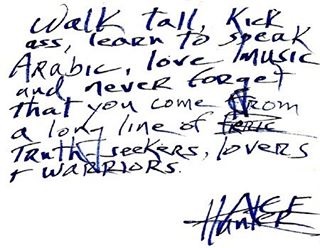 Walk tall, kick
ass, learn to speak
Arabic, love music
and never forget
that you come from
a long line of
truth seekers, lovers
+ warriors.
Hunter